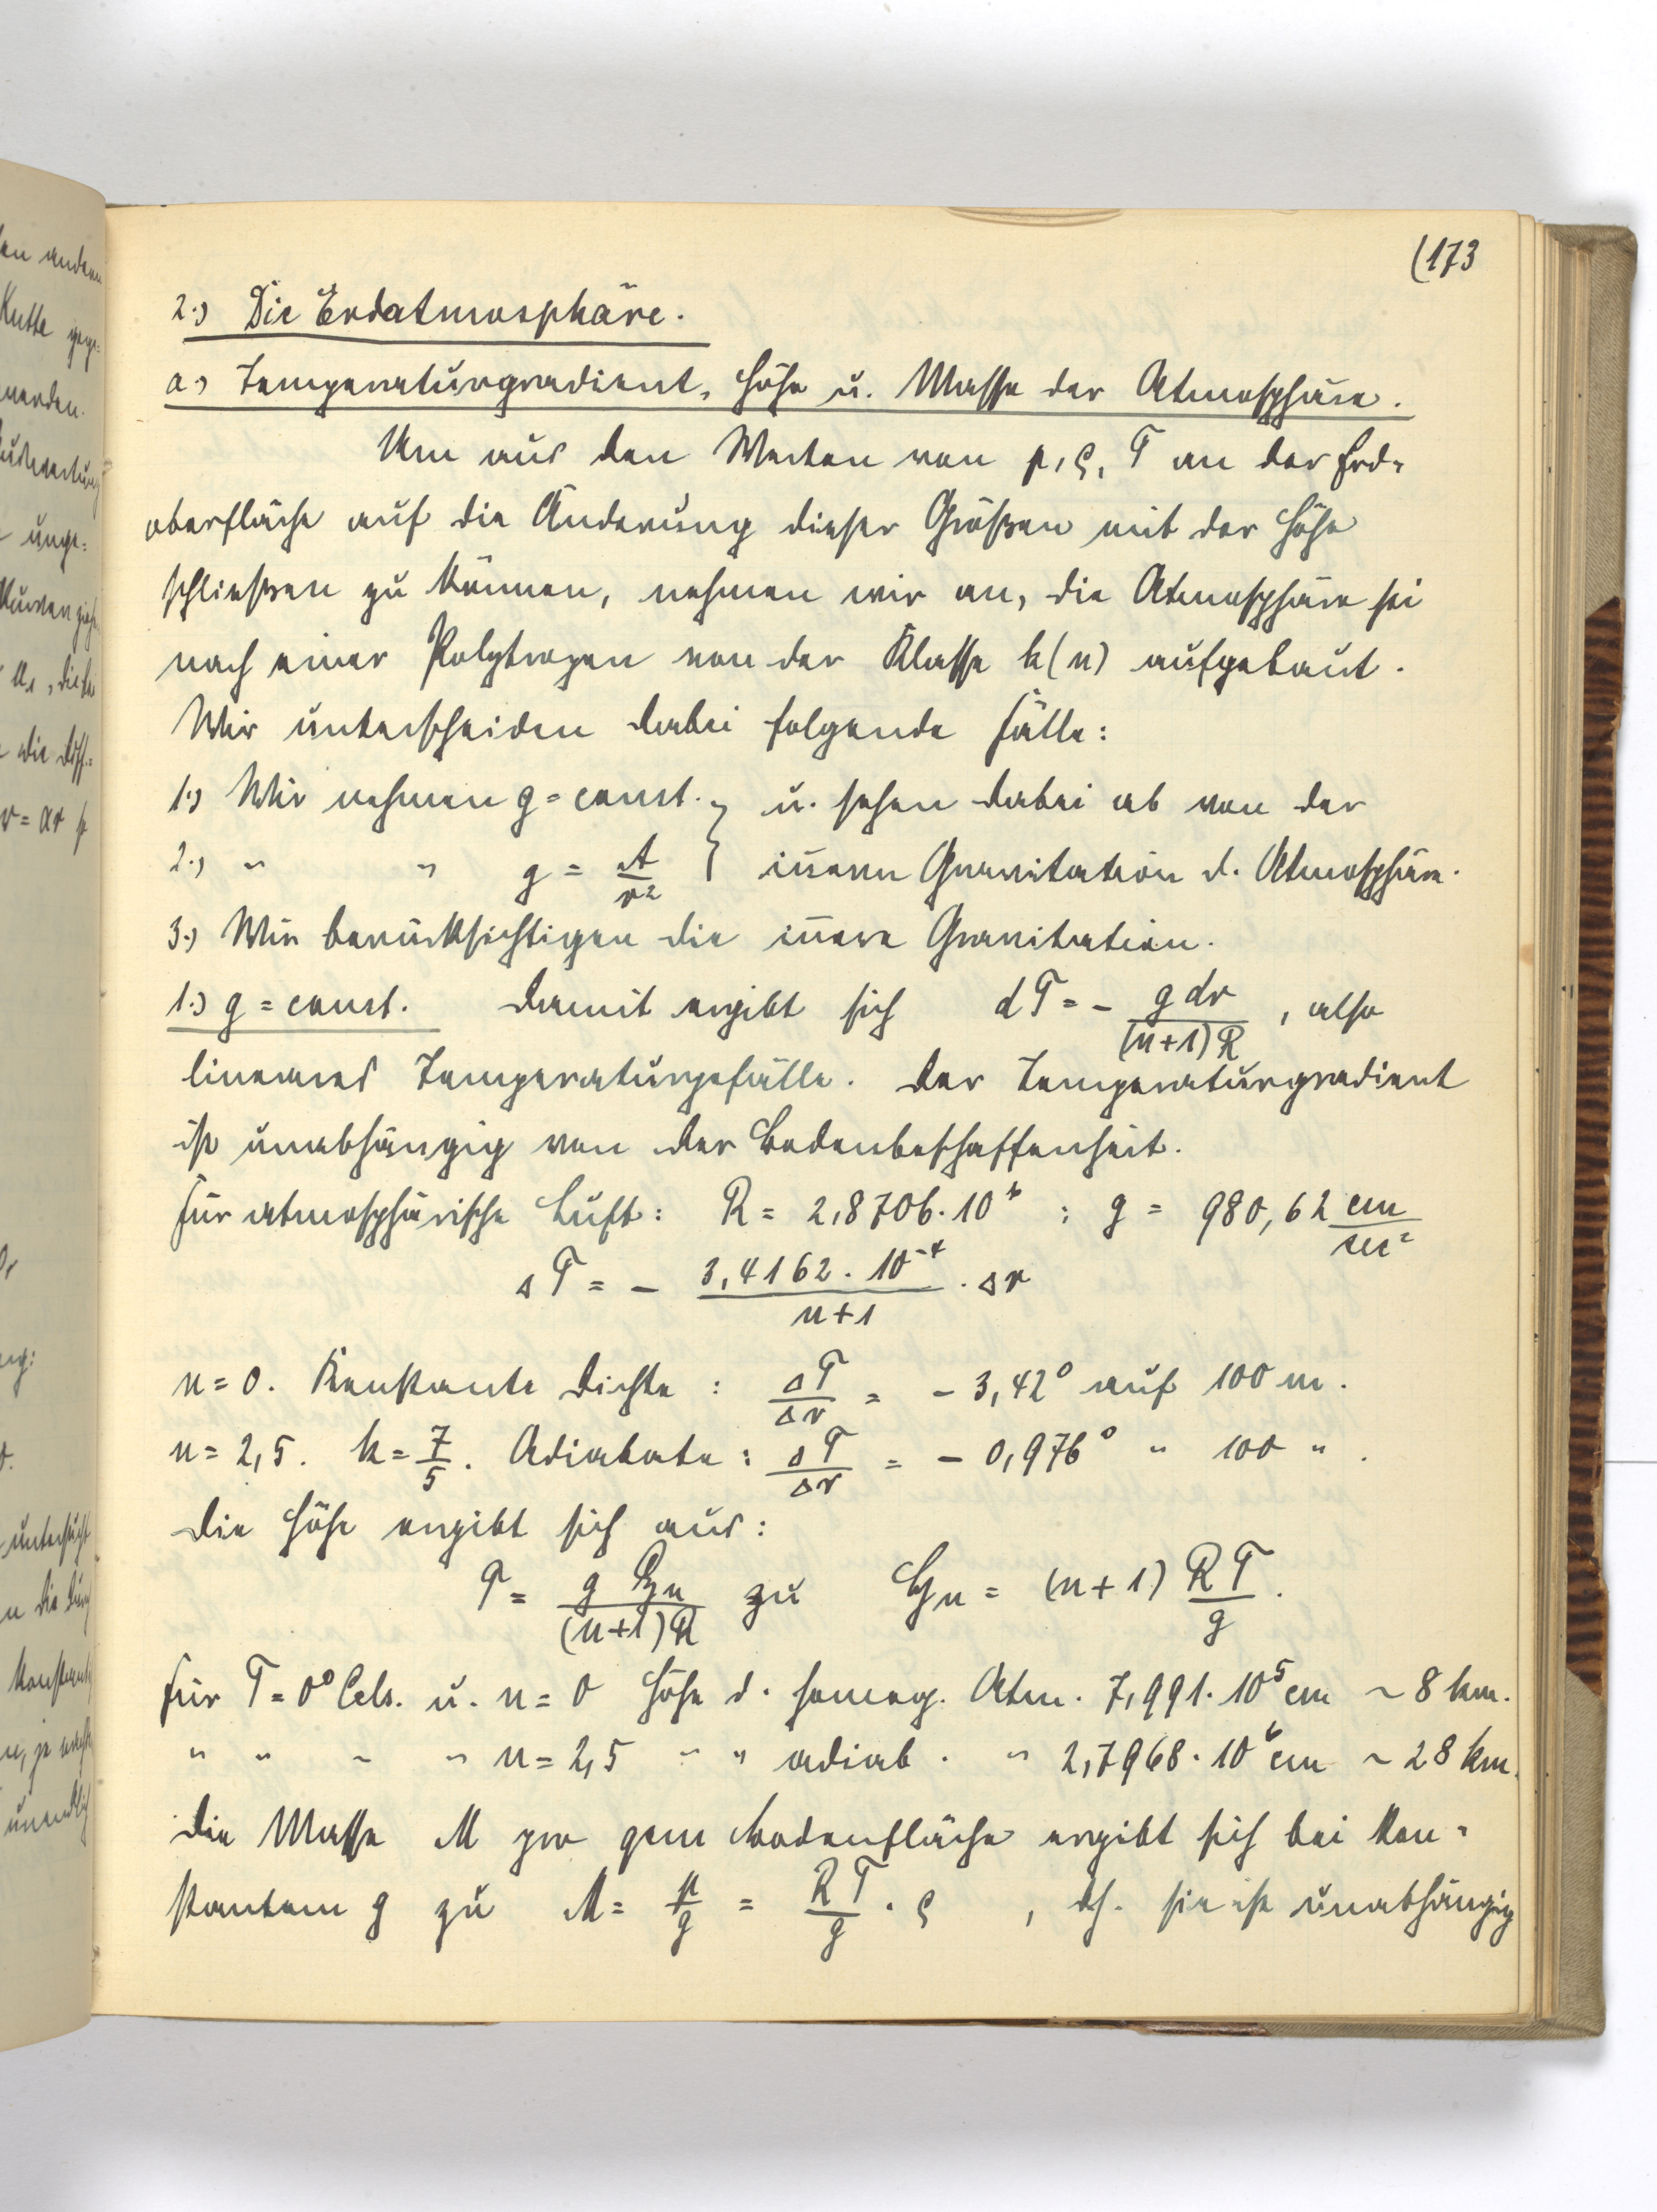 (173
2.) Die Erdatmosphäre.
a.) Temperaturgradient, Höhe u. Masse der Atmosphäre.
Um aus den Werten von p, ρ, T an der Erd-
oberfläche auf die Änderung dieser Größen mit der Höhe
schließen zu können, nehmen wir an, die Atmosphäre sei
nach einer Polytropen von der Klasse k(n) aufgebaut.
Wir unterscheiden dabei folgende Fälle:
1.) Wir nehmen g = const. } u. sehen dabei ab von der
2.) " " g = A/r² } inneren Gravitation d. Atmosphäre.
3.) Wir berücksichtigen die innere Gravitation.
1.) g = const. Damit ergibt sich dT = - g dr/(n+1)R , also
lineares Temperaturgefälle. Der Temperaturgradient
ist unabhängig von der Bodenbeschaffenheit.
Für atmosphärische Luft: R = 2,8706·10⁶ ; g = 980,62 cm/sec²
ΔT = - 3,4162·10⁻⁴/n+1 · Δr
n = 0. Konstante Dichte : ΔT/Δr = - 3,42° auf 100 m.
n = 2,5. k = 7/5. Adiabate : ΔT/Δr = - 0,976° " 100 " .
Die Höhe ergibt sich aus:
T = g ℌn/(n+1)R zu ℌn = (n+1) RT/g .
Für T = 0° Cels. u. n = 0 Höhe d. homog. Atm. 7,991·10⁵ cm ~ 8 km.
" " " " n = 2,5 " " adiab. " 2,7968·10⁶ cm ~ 28 km.
Die Masse M pro qcm Bodenfläche ergibt sich bei kon-
stantem g zu M = p/g = RT/g · ρ , dh. sie ist unabhängig